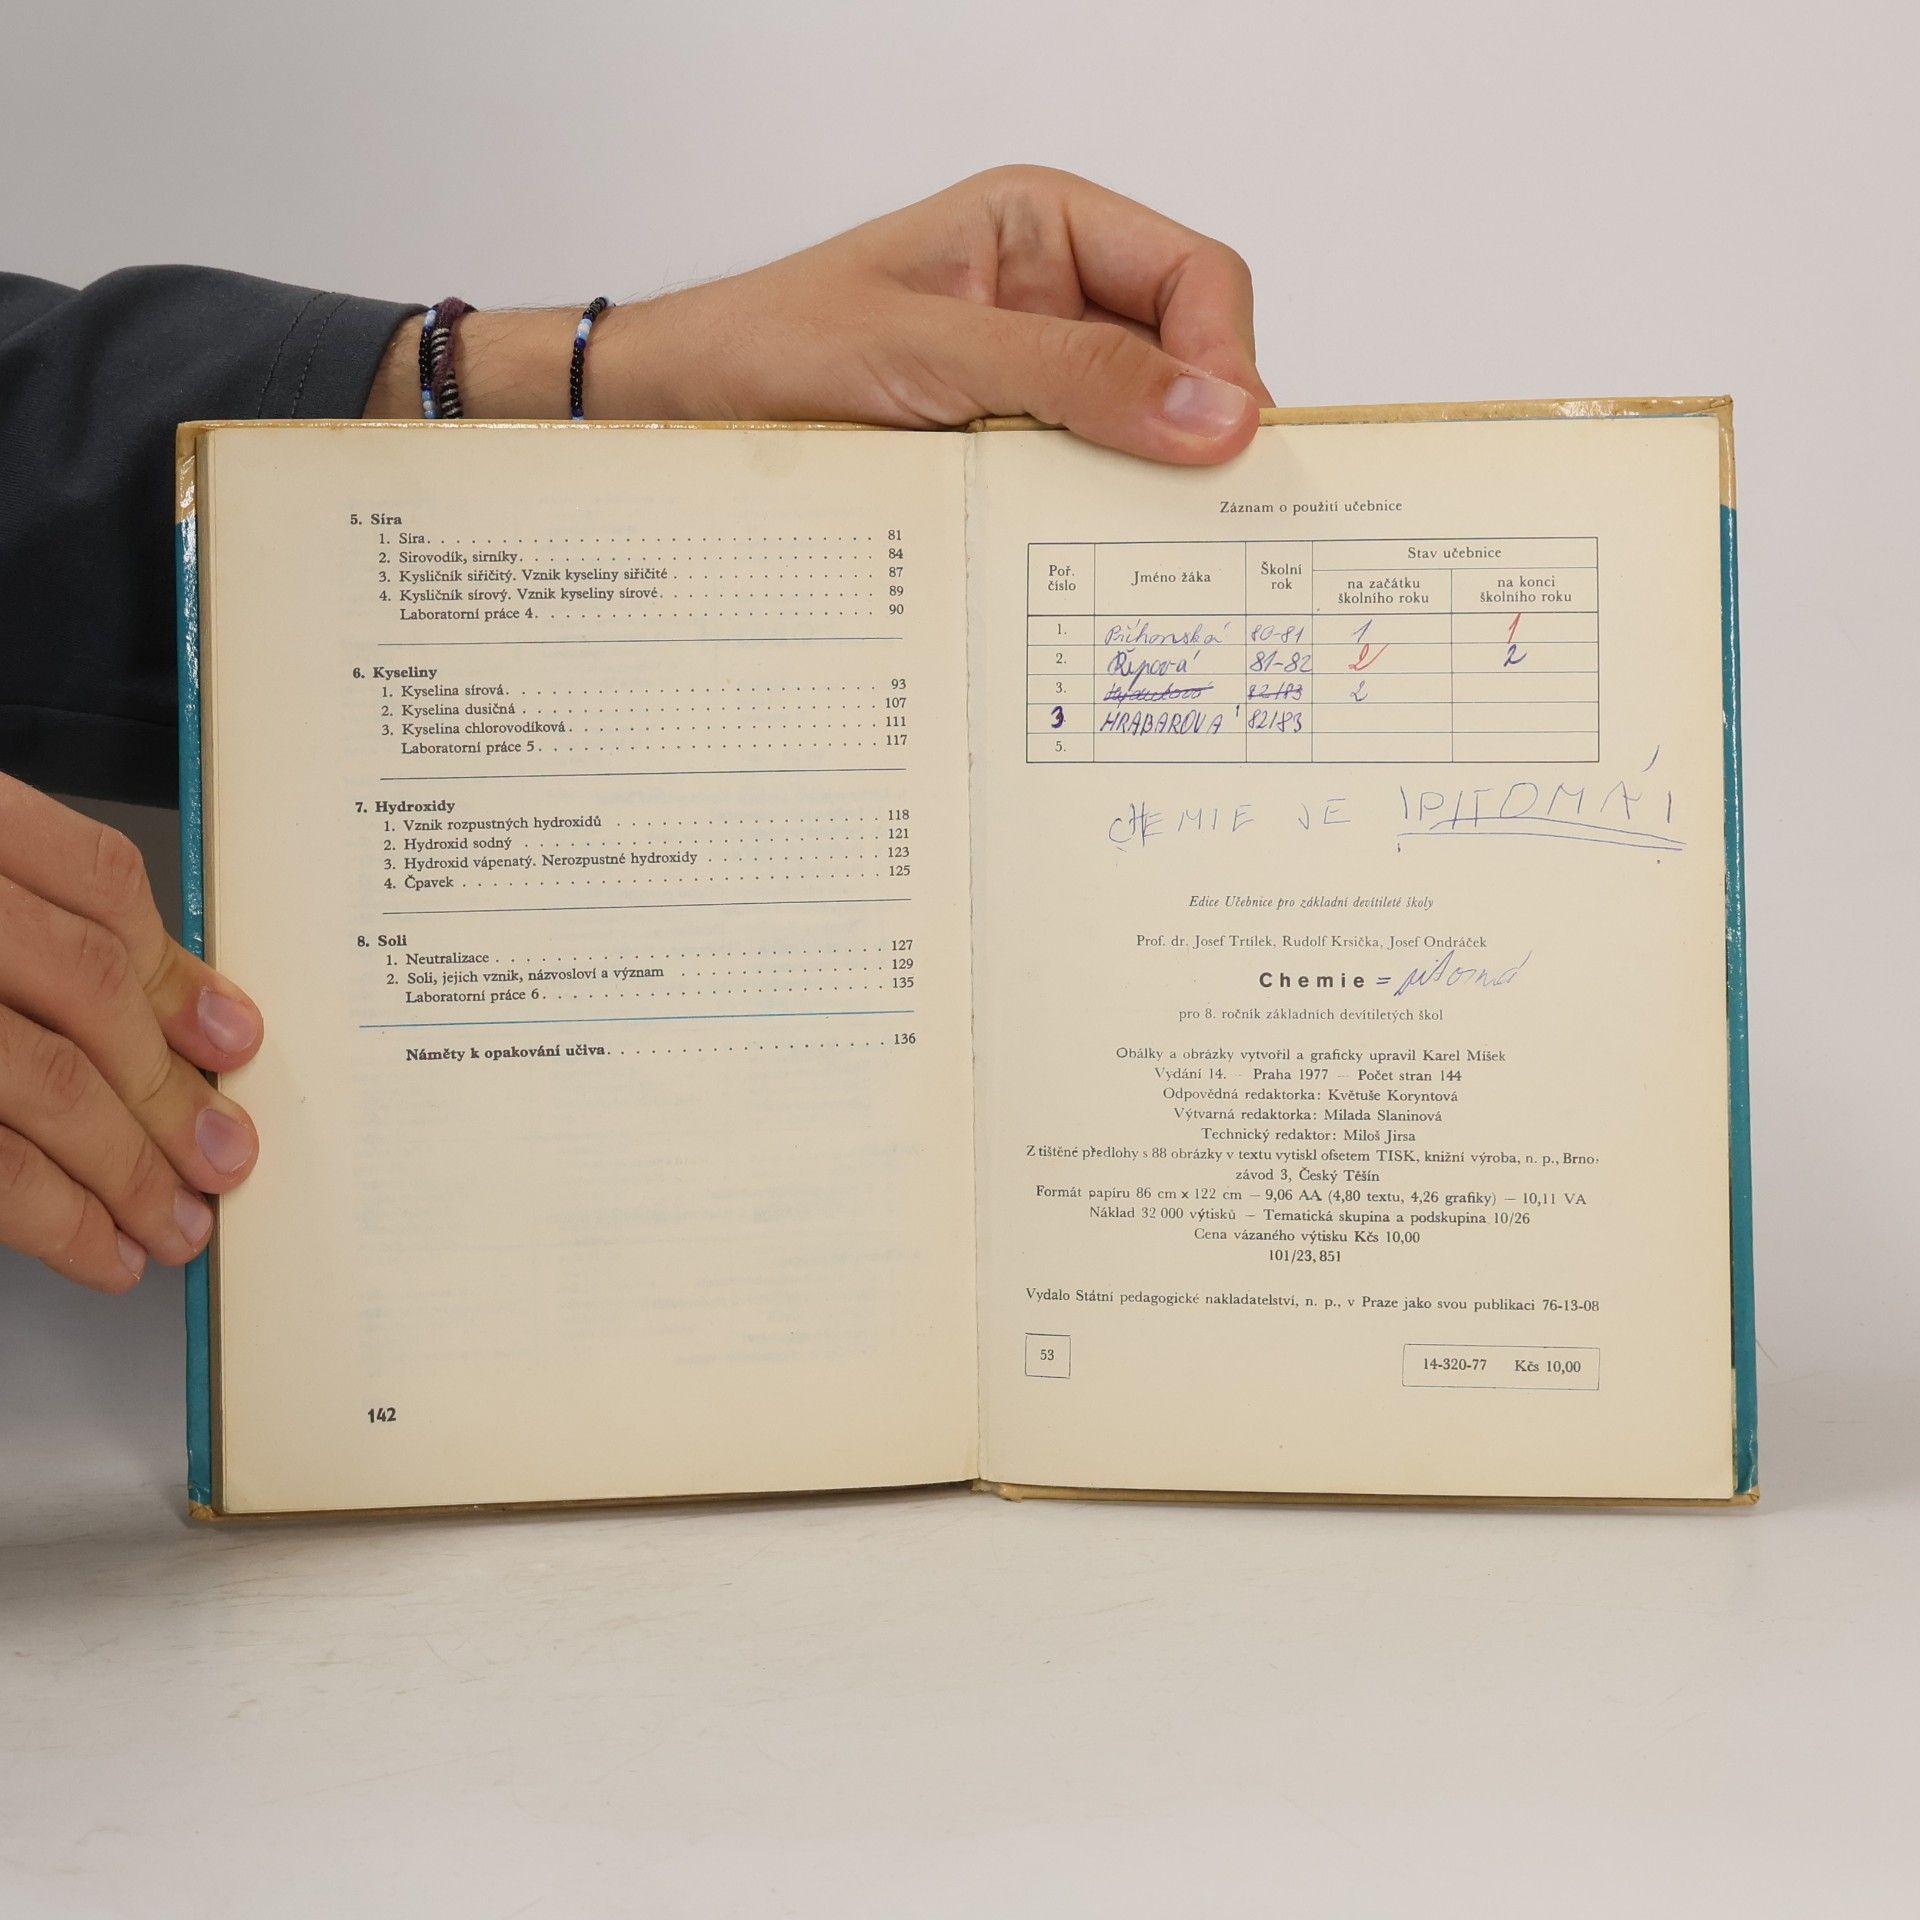 5. Síra
1. Síra. . . . . . . . . . . . . . . . . . . . . . . . . . . . 81
2. Sirovodík, sirníky. . . . . . . . . . . . . . . . . . . . . . 84
3. Kysličník siřičitý. Vznik kyseliny siřičité . . . . . . . . . . . . . 87
4. Kysličník sírový. Vznik kyseliny sírové. . . . . . . . . . . . . . 89
Laboratorní práce 4. . . . . . . . . . . . . . . . . . . . . 90
6. Kyseliny
1. Kyselina sírová. . . . . . . . . . . . . . . . . . . . . . . 93
2. Kyselina dusičná . . . . . . . . . . . . . . . . . . . . . . 107
3. Kyselina chlorovodíková. . . . . . . . . . . . . . . . . . . 111
Laboratorní práce 5. . . . . . . . . . . . . . . . . . . . . 117
7. Hydroxidy
1. Vznik rozpustných hydroxidů . . . . . . . . . . . . . . . . 118
2. Hydroxid sodný . . . . . . . . . . . . . . . . . . . . . . 121
3. Hydroxid vápenatý. Nerozpustné hydroxidy . . . . . . . . . . 123
4. Čpavek . . . . . . . . . . . . . . . . . . . . . . . . . . 125
8. Soli
1. Neutralizace . . . . . . . . . . . . . . . . . . . . . . . . 127
2. Soli, jejich vznik, názvosloví a význam . . . . . . . . . . . . 129
Laboratorní práce 6. . . . . . . . . . . . . . . . . . . . . 135
Náměty k opakování učiva. . . . . . . . . . . . . . . . . . 136
142
Záznam o použití učebnice
Poř. číslo Jméno žáka Školní rok Stav učebnice
na začátku školního roku na konci školního roku
1. Příhonská 80-81 1 1
2. Řepová 81-82 2 2
3. 82/83 2
3 HRABAROVÁ 82/83
5.
CHEMIE JE PITOMÁ!
Edice Učebnice pro základní devítileté školy
Prof. dr. Josef Trtílek, Rudolf Krsička, Josef Ondráček
Chemie = pitomá
pro 8. ročník základních devítiletých škol
Obálky a obrázky vytvořil a graficky upravil Karel Míšek
Vydání 14. — Praha 1977 — Počet stran 144
Odpovědná redaktorka: Květuše Koryntová
Výtvarná redaktorka: Milada Slaninová
Technický redaktor: Miloš Jirsa
Z tištěné předlohy s 88 obrázky v textu vytiskl ofsetem TISK, knižní výroba, n. p., Brno,
závod 3, Český Těšín
Formát papíru 86 cm x 122 cm — 9,06 AA (4,80 textu, 4,26 grafiky) — 10,11 VA
Náklad 32 000 výtisků — Tematická skupina a podskupina 10/26
Cena vázaného výtisku Kčs 10,00
101/23, 851
Vydalo Státní pedagogické nakladatelství, n. p., v Praze jako svou publikaci 76-13-08
53
14-320-77 Kčs 10,00